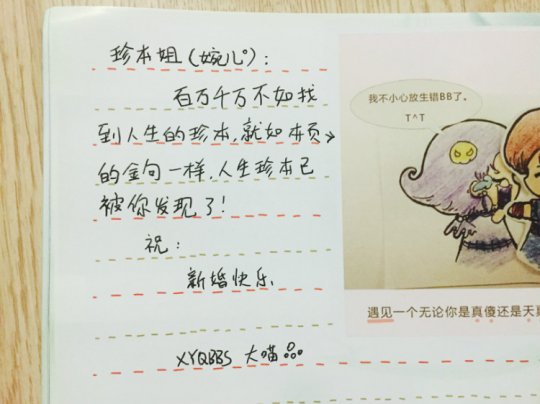 珍本姐(婉儿):
百万千万不如找
到人生的珍本,就如本页→
的金句一样,人生珍本已
被你发现了!
祝:
新婚快乐
XYQBBS 大喵
我不小心放生错BB了。
T^T
遇见一个无论你是真傻还是天